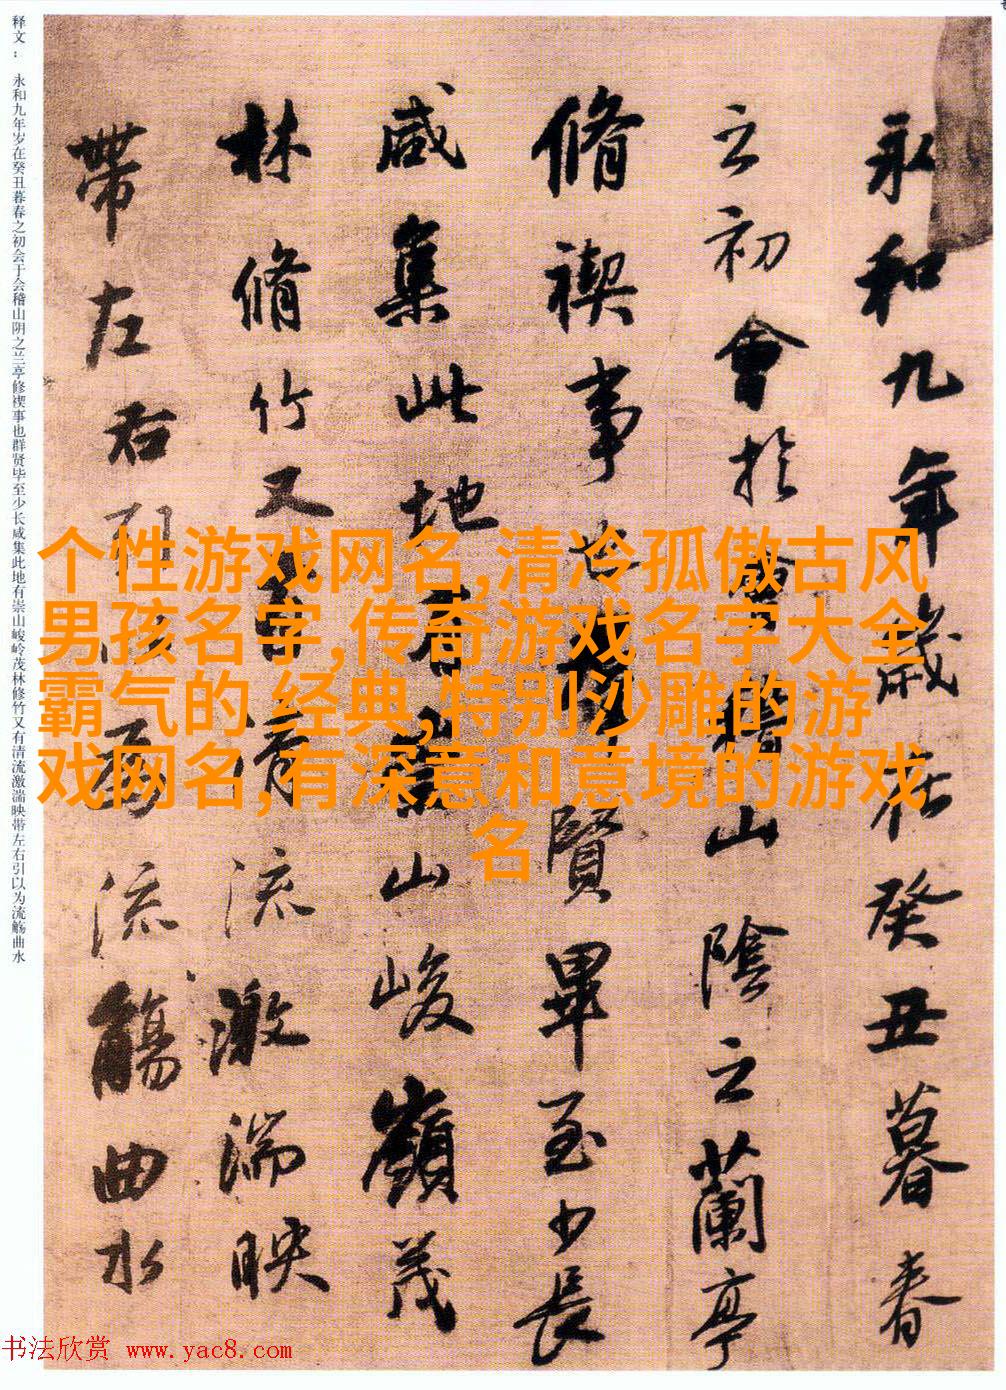 永和九年歲在癸丑暮春
之初會於會稽山陰之蘭亭
脩禊事也羣賢畢至少長
咸集此地有崇山峻嶺茂
林脩竹又有清流激湍映
帶左右引以為流觴曲水
释文：永和九年岁在癸丑暮春之初会于会稽山阴之兰亭修禊事也群贤毕至少长咸集此地有崇山峻岭茂林修竹又有清流激湍映带左右引以为流觞曲水
个性游戏网名,清冷孤傲古风
男孩名字,传奇游戏名字大全
霸气的 经典,特别沙雕的游
戏网名,有深意和意境的游戏
名
书法欣赏 www.yac8.com